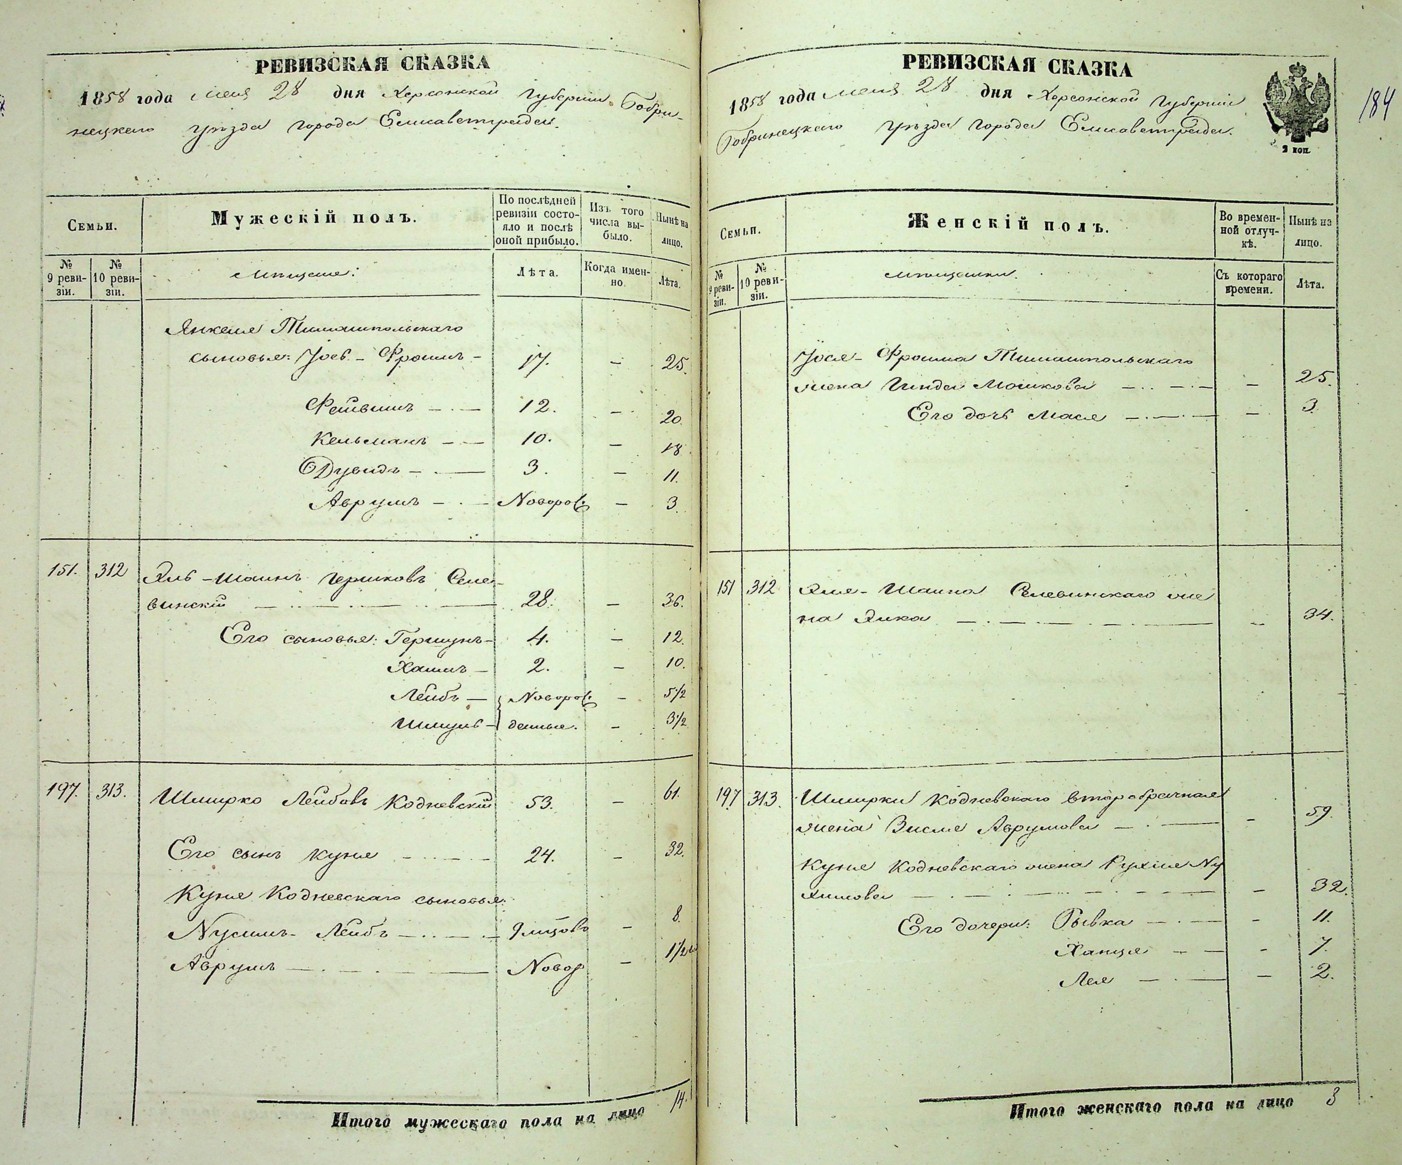 РЕВИЗСКАЯ СКАЗКА
1858 года Мая 28 дня Херсонской Губернии Бобри-
нецкаго уѣзда города Елисаветграда.
Семьи.
Мужескій полъ.
По послѣдней ревизіи состо-
яло и послѣ оной прибыло.
Изъ того числа вы-
было.
Нынѣ на лицо.
№ 9 реви-
зіи.
№ 10 реви-
зіи.
Мѣщане:
Лѣта.
Когда имен-
но.
Лѣта.
Янкеля
сыновья: Іось-Фроимъ 17. – 25.
Фейвишъ 12. – 20.
Кельманъ 10. – 18
Дувидъ 3. – 11.
Аврумъ Новорож – 3
151. 312 Эль-Шаинъ Гершковъ Селе-
винскій 28. – 36.
Его сыновья: Гершунъ 4. – 12.
Хаимъ 2. – 10.
Лейбъ Новорож – 5½
Шмуль денные. – 3½
197. 313. Шмирко Лейбовъ Кодневскій 53. – 61.
Его сынъ Куня 24. – 32.
Куня Кодневскаго сыновья:
Нусимъ-Лейбъ – 8.
Аврумъ Новор – 1½
Итого мужескаго пола на лицо 14.
РЕВИЗСКАЯ СКАЗКА
1858 года Мая 28 дня Херсонской Губерніи
Бобринецкаго уѣзда города Елисаветграда.
2 коп.
184
Семьи.
Женскій полъ.
Во времен-
ной отлуч-
кѣ.
Нынѣ на лицо.
№ 9 реви-
зіи.
№ 10 реви-
зіи.
Мѣщанки.
Съ котораго времени.
Лѣта.
Іося-Фроима
жена Гинда Мошкова – 25.
Его дочь Мася – 3
151 312 Эля-Шаина Селевинскаго же
на Эйка – 34.
197 313. Шмирки Кодневскаго второбрачная
жена Висме Аврумова – 59.
Куня Кодневскаго жена Рухля Ну
химова – 32.
Его дочери: Рывка – 11.
Ханця – 7.
Лея – 2.
Итого женскаго пола на лицо 8